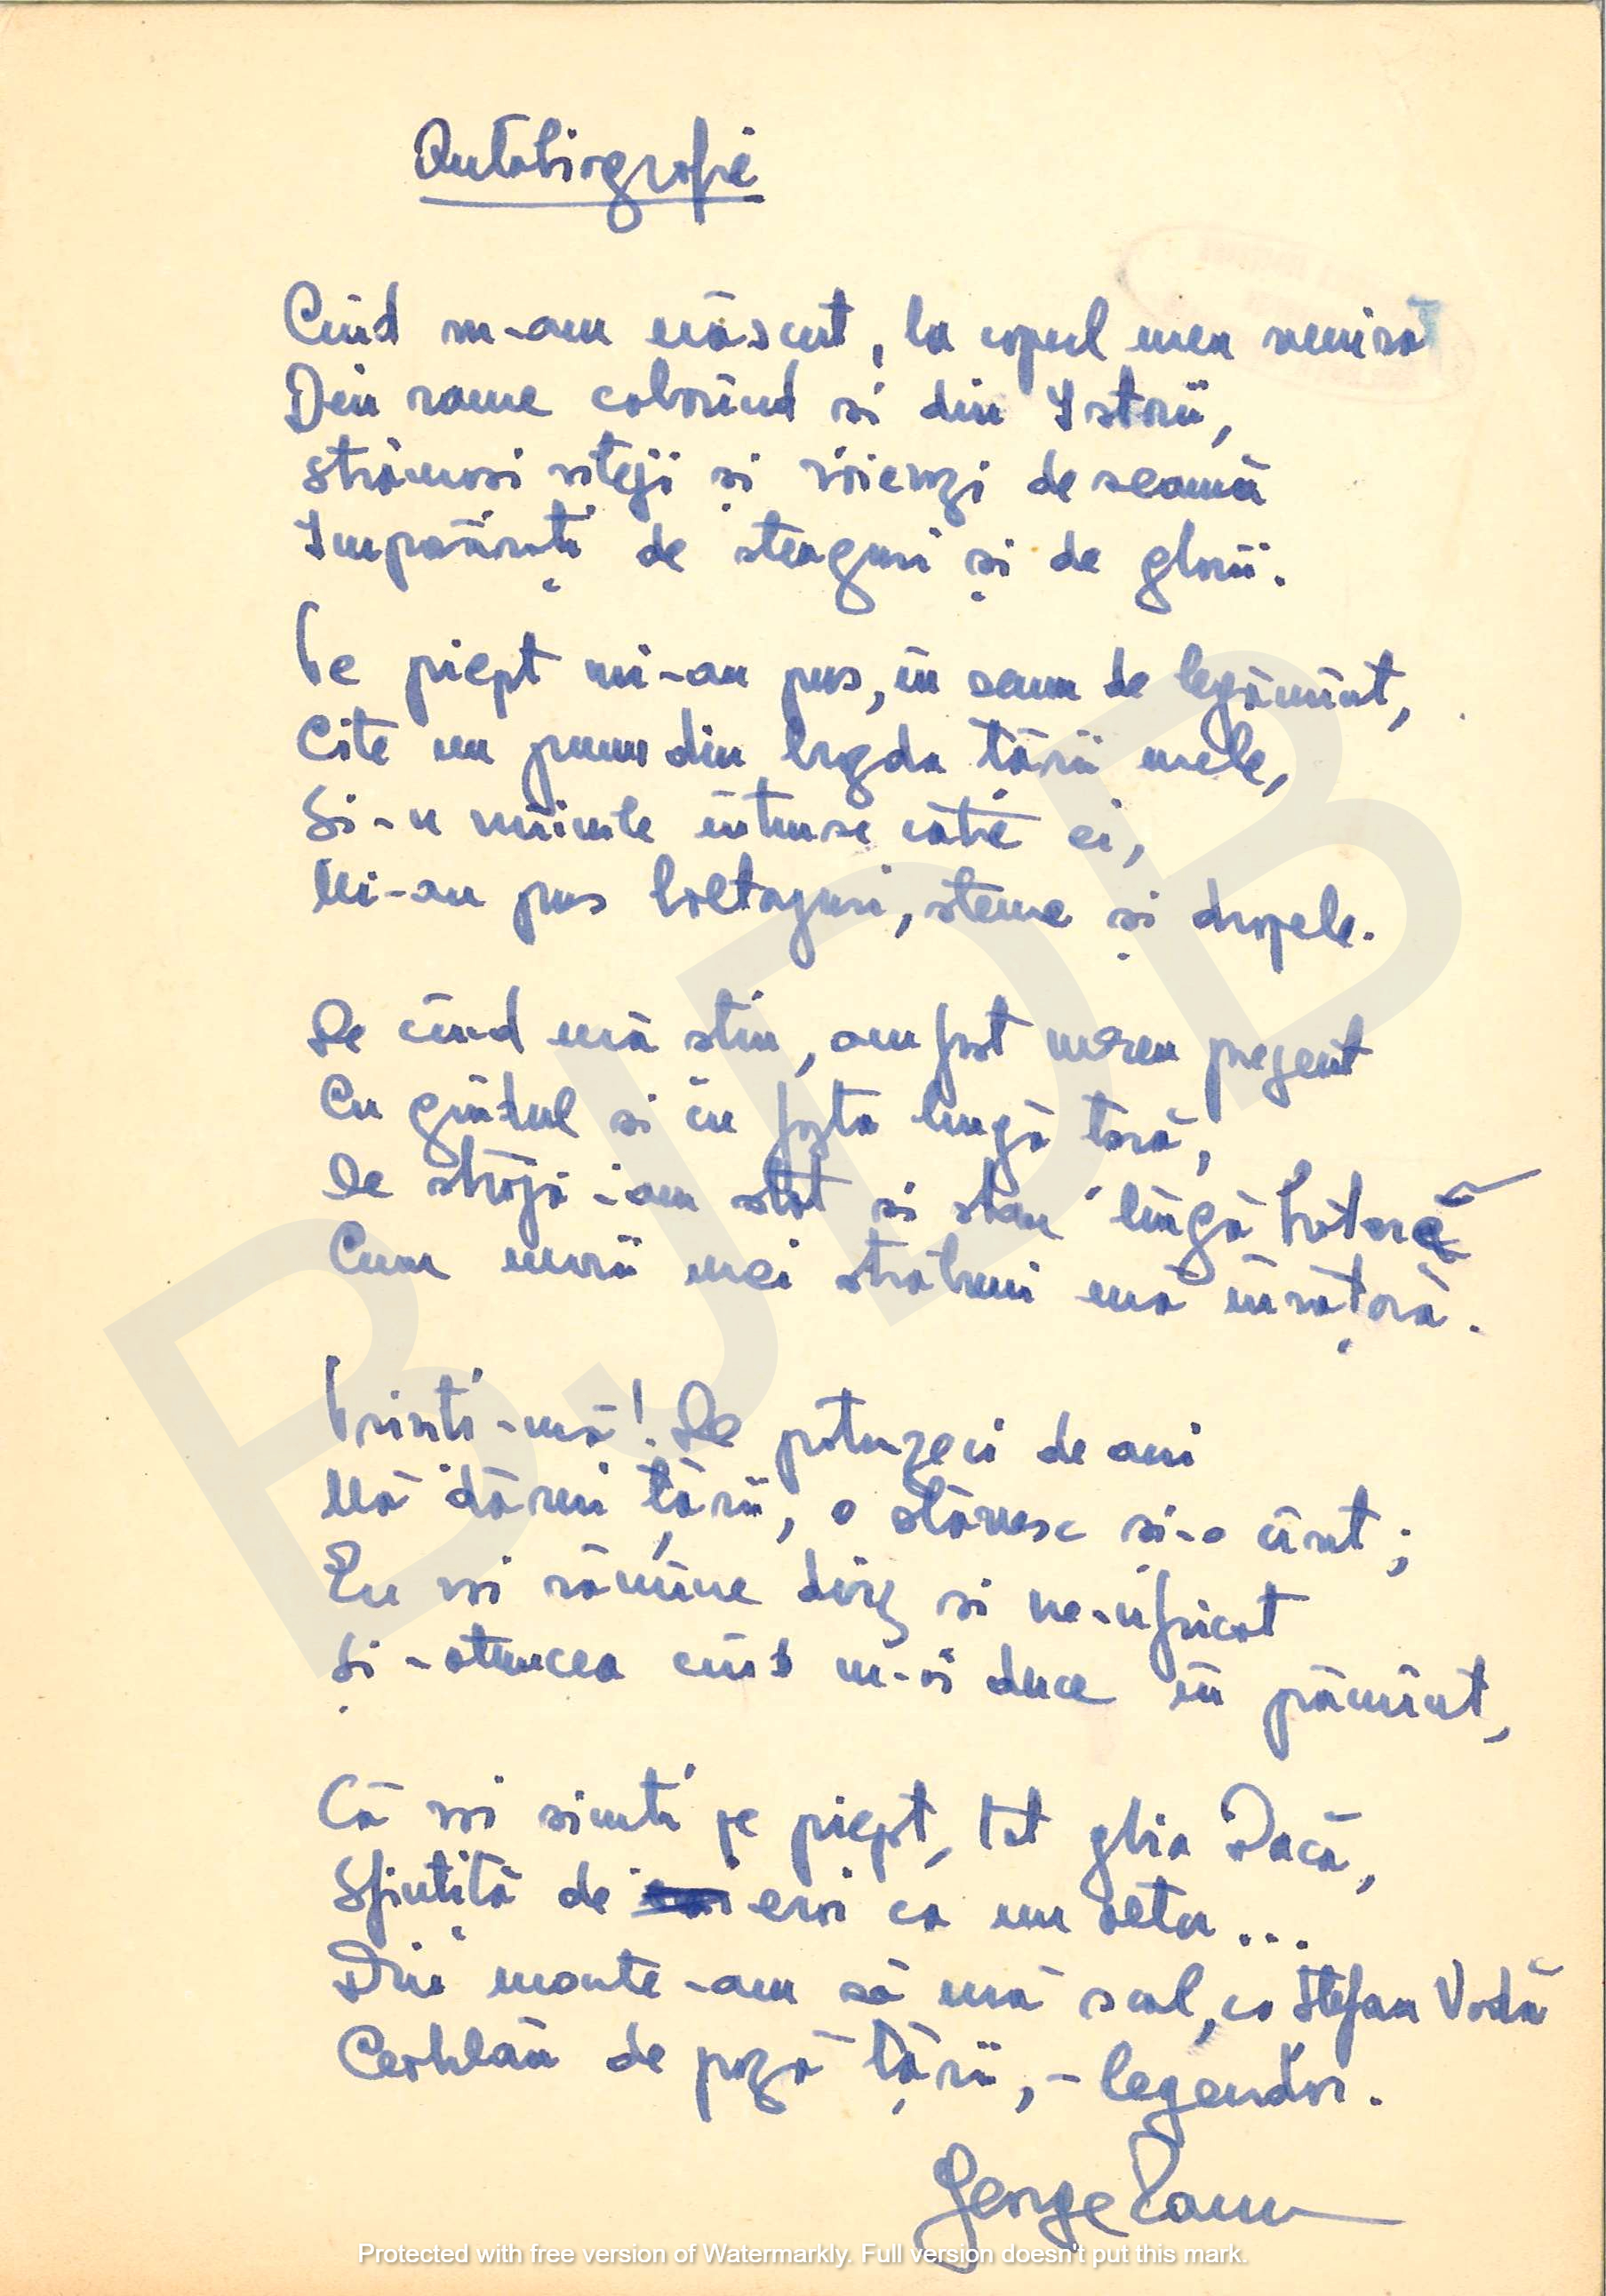 Autobiografie
Cînd m-am născut, la capul meu veniră
Din rame coborînd si din Istorii,
Strămosi viteji și voievozi de seamă
Impăărați de steaguri și de glorii.
Pe piept mi-au pus, în semn de legămînt,
Cîte un pumn din brazda țării mele,
Si-n mîinile întinse către ei,
Mi-au pus baltaguri, steme și drapele.
De cînd mă știu, am fost mereu prezent
Cu gîndul si cu fapta lîngă țară,
De strajă-am stat si stau lîngă hotară
Cum marii mei străbuni mă învățară.
Priviti-mă! De patruzeci de ani
Mă dărui țării, o slăvesc și-o cînt;
Eu voi rămîne dîrz si ne-nfricat
Și-atuncea cînd m-oi duce în pămînt,
Că voi simti pe piept, tot glia Dacă,
Sfințită de eroi ca un altar...
Din moarte-am să mă scol, ca Stefan Vodă
Ceahlău de pază țării, - legendar.
George
BJDB
Protected with free version of Watermarkly. Full version doesn't put this mark.